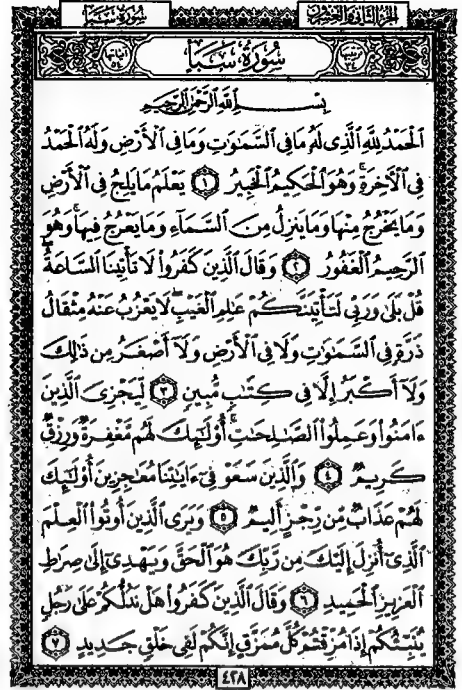 الجزء الثاني والعشرون
سورة سبأ
سُورَةُ سَبَأٍ
بِسْمِ ٱللَّهِ ٱلرَّحْمَٰنِ ٱلرَّحِيمِ
ٱلْحَمْدُ لِلَّهِ ٱلَّذِى لَهُۥ مَا فِى ٱلسَّمَٰوَٰتِ وَمَا فِى ٱلْأَرْضِ وَلَهُ ٱلْحَمْدُ
فِى ٱلْءَاخِرَةِ ۚ وَهُوَ ٱلْحَكِيمُ ٱلْخَبِيرُ ١ يَعْلَمُ مَا يَلِجُ فِى ٱلْأَرْضِ
وَمَا يَخْرُجُ مِنْهَا وَمَا يَنزِلُ مِنَ ٱلسَّمَآءِ وَمَا يَعْرُجُ فِيهَا ۚ وَهُوَ
ٱلرَّحِيمُ ٱلْغَفُورُ ٢ وَقَالَ ٱلَّذِينَ كَفَرُوا۟ لَا تَأْتِينَا ٱلسَّاعَةُ ۖ
قُلْ بَلَىٰ وَرَبِّى لَتَأْتِيَنَّكُمْ عَٰلِمِ ٱلْغَيْبِ ۖ لَا يَعْزُبُ عَنْهُ مِثْقَالُ
ذَرَّةٍ فِى ٱلسَّمَٰوَٰتِ وَلَا فِى ٱلْأَرْضِ وَلَآ أَصْغَرُ مِن ذَٰلِكَ
وَلَآ أَكْبَرُ إِلَّا فِى كِتَٰبٍ مُّبِينٍ ٣ لِّيَجْزِىَ ٱلَّذِينَ
ءَامَنُوا۟ وَعَمِلُوا۟ ٱلصَّٰلِحَٰتِ ۚ أُو۟لَٰٓئِكَ لَهُم مَّغْفِرَةٌ وَرِزْقٌ
كَرِيمٌ ٤ وَٱلَّذِينَ سَعَوْ فِىٓ ءَايَٰتِنَا مُعَٰجِزِينَ أُو۟لَٰٓئِكَ
لَهُمْ عَذَابٌ مِّن رِّجْزٍ أَلِيمٌ ٥ وَيَرَى ٱلَّذِينَ أُوتُوا۟ ٱلْعِلْمَ
ٱلَّذِىٓ أُنزِلَ إِلَيْكَ مِن رَّبِّكَ هُوَ ٱلْحَقَّ وَيَهْدِىٓ إِلَىٰ صِرَٰطِ
ٱلْعَزِيزِ ٱلْحَمِيدِ ٦ وَقَالَ ٱلَّذِينَ كَفَرُوا۟ هَلْ نَدُلُّكُمْ عَلَىٰ رَجُلٍ
يُنَبِّئُكُمْ إِذَا مُزِّقْتُمْ كُلَّ مُمَزَّقٍ إِنَّكُمْ لَفِى خَلْقٍ جَدِيدٍ ٧
٤٢٨